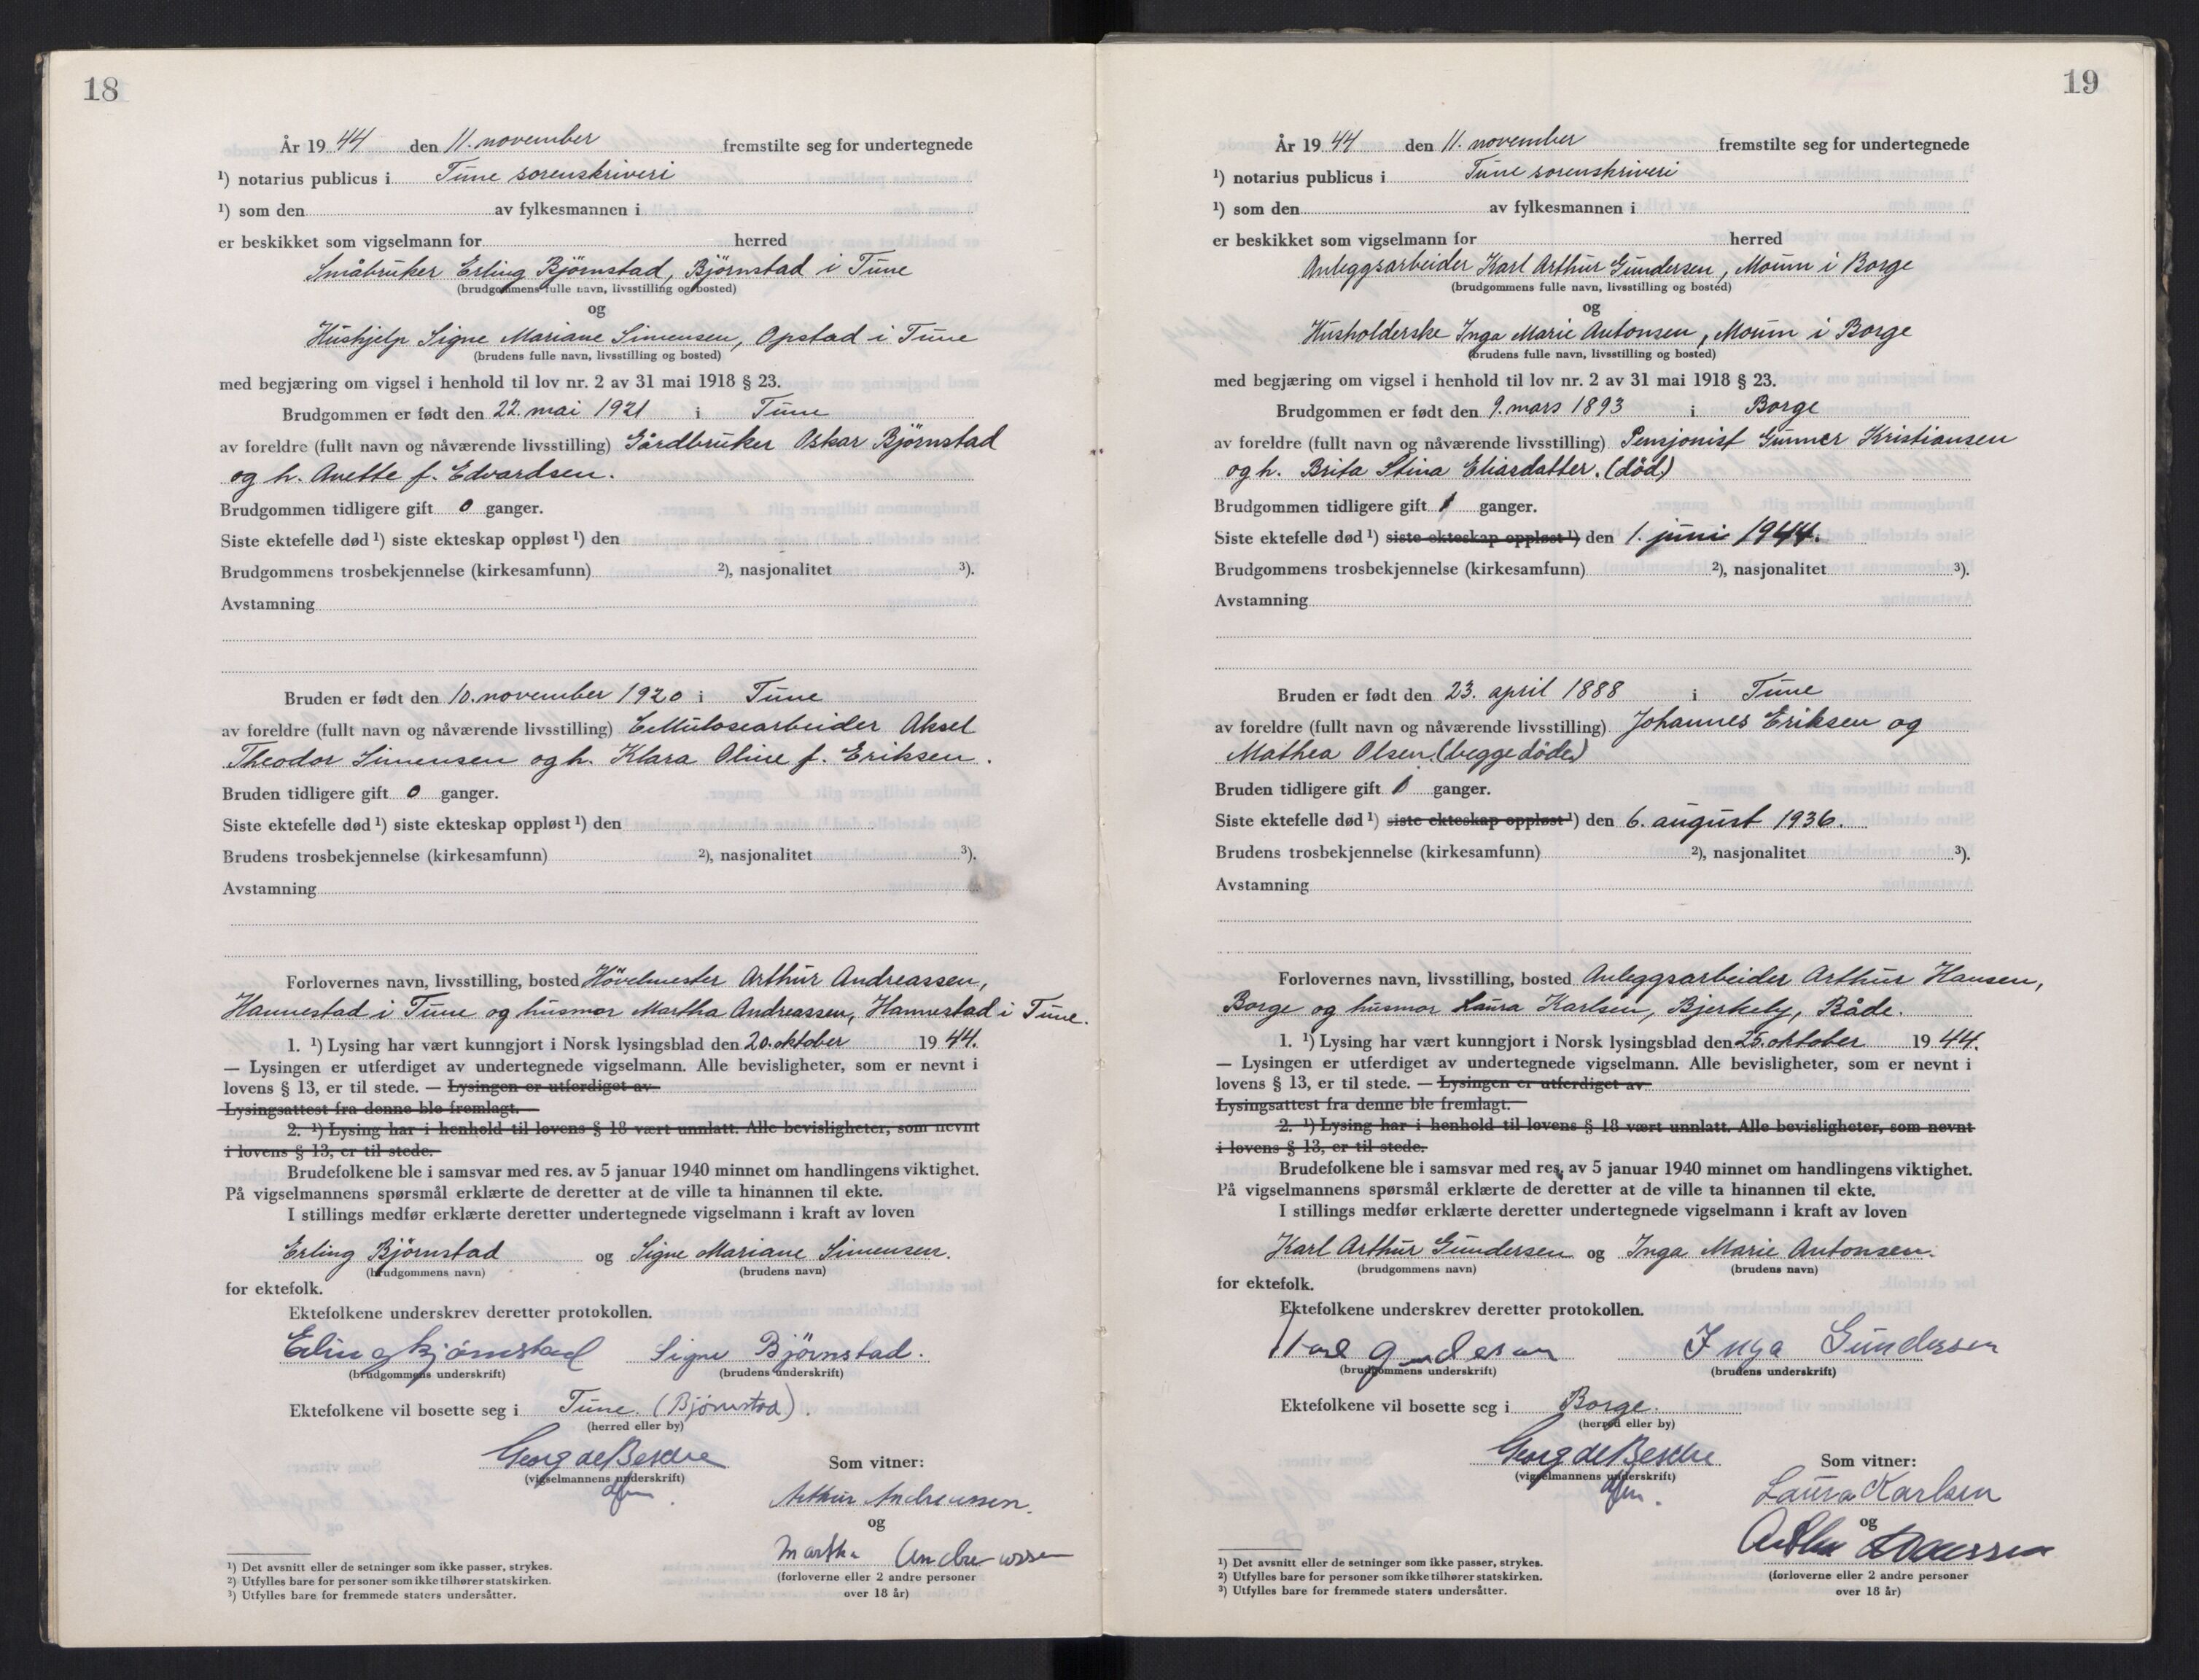 18
År 19 44 den 11. november fremstilte seg for undertegnede
¹) notarius publicus i Tune sorenskriveri
¹) som den av fylkesmannen i
er beskikket som vigselmann for herred
Småbruker Erling Bjørnstad, Bjørnstad i Tune
(brudgommens fulle navn, livsstilling og bosted)
og
Hushjelp Signe Mariane Simensen, Opstad i Tune
(brudens fulle navn, livsstilling og bosted)
med begjæring om vigsel i henhold til lov nr. 2 av 31 mai 1918 § 23.
Brudgommen er født den 22. mai 1921 i Tune
av foreldre (fullt navn og nåværende livsstilling) Gårdbruker Oskar Bjørnstad
og h. Anette f. Edvardsen.
Brudgommen tidligere gift 0 ganger.
Siste ektefelle død ¹) siste ekteskap oppløst ¹) den
Brudgommens trosbekjennelse (kirkesamfunn) ²), nasjonalitet ³).
Avstamning
Bruden er født den 10. november 1920 i Tune
av foreldre (fullt navn og nåværende livsstilling) Cellulosearbeider Aksel
Theodor Simensen og h. Klara Oline f. Eriksen.
Bruden tidligere gift 0 ganger.
Siste ektefelle død ¹) siste ekteskap oppløst ¹) den
Brudens trosbekjennelse (kirkesamfunn) ²), nasjonalitet ³).
Avstamning
Forlovernes navn, livsstilling, bosted Høvelmester Arthur Andreassen,
Hannestad i Tune og husmor Martha Andreassen, Hannestad i Tune.
1. ¹) Lysing har vært kunngjort i Norsk lysingsblad den 20. oktober 19 44.
— Lysingen er utferdiget av undertegnede vigselmann. Alle bevisligheter, som er nevnt i
lovens § 13, er til stede. — Lysingen er utferdiget av
Lysingsattest fra denne ble fremlagt.
2. ¹) Lysing har i henhold til lovens § 18 vært unnlatt. Alle bevisligheter, som nevnt
i lovens § 13, er til stede.
Brudefolkene ble i samsvar med res. av 5 januar 1940 minnet om handlingens viktighet.
På vigselmannens spørsmål erklærte de deretter at de ville ta hinannen til ekte.
I stillings medfør erklærte deretter undertegnede vigselmann i kraft av loven
Erling Bjørnstad og Signe Mariane Simensen.
(brudgommens navn) (brudens navn)
for ektefolk.
Ektefolkene underskrev deretter protokollen.
Erling Bjørnstad Signe Bjørnstad.
(brudgommens underskrift) (brudens underskrift)
Ektefolkene vil bosette seg i Tune. (Bjørnstad).
(herred eller by)
Georg de Besche
(vigselmannens underskrift) Som vitner:
Arthur Andreassen.
og
Martha Andreassen
(forloverne eller 2 andre personer
over 18 år)
¹) Det avsnitt eller de setninger som ikke passer, strykes.
²) Utfylles bare for personer som ikke tilhører statskirken.
³) Utfylles bare for fremmede staters undersåtter.
19
År 19 44 den 11. november fremstilte seg for undertegnede
¹) notarius publicus i Tune sorenskriveri
¹) som den av fylkesmannen i
er beskikket som vigselmann for herred
Anleggsarbeider Karl Arthur Gundersen, Moum i Borge
(brudgommens fulle navn, livsstilling og bosted)
og
Husholderske Inga Marie Antonsen, Moum i Borge
(brudens fulle navn, livsstilling og bosted)
med begjæring om vigsel i henhold til lov nr. 2 av 31 mai 1918 § 23.
Brudgommen er født den 9. mars 1893 i Borge
av foreldre (fullt navn og nåværende livsstilling) Pensjonist Gunner Kristiansen
og h. Brita Stina Eliasdatter. (død)
Brudgommen tidligere gift 1 ganger.
Siste ektefelle død ¹) siste ekteskap oppløst ¹) den 1. juni 1944.
Brudgommens trosbekjennelse (kirkesamfunn) ²), nasjonalitet ³).
Avstamning
Bruden er født den 23. april 1888 i Tune
av foreldre (fullt navn og nåværende livsstilling) Johannes Eriksen og
Mathea Olsen. (begge døde)
Bruden tidligere gift 1 ganger.
Siste ektefelle død ¹) siste ekteskap oppløst ¹) den 6. august 1936.
Brudens trosbekjennelse (kirkesamfunn) ²), nasjonalitet ³).
Avstamning
Forlovernes navn, livsstilling, bosted Anleggsarbeider Arthur Hansen,
Borge og husmor Laura Karlsen, Bjerkely, Råde.
1. ¹) Lysing har vært kunngjort i Norsk lysingsblad den 25. oktober 19 44.
— Lysingen er utferdiget av undertegnede vigselmann. Alle bevisligheter, som er nevnt i
lovens § 13, er til stede. — Lysingen er utferdiget av
Lysingsattest fra denne ble fremlagt.
2. ¹) Lysing har i henhold til lovens § 18 vært unnlatt. Alle bevisligheter, som nevnt
i lovens § 13, er til stede.
Brudefolkene ble i samsvar med res. av 5 januar 1940 minnet om handlingens viktighet.
På vigselmannens spørsmål erklærte de deretter at de ville ta hinannen til ekte.
I stillings medfør erklærte deretter undertegnede vigselmann i kraft av loven
Karl Arthur Gundersen og Inga Marie Antonsen.
(brudgommens navn) (brudens navn)
for ektefolk.
Ektefolkene underskrev deretter protokollen.
Karl Gundersen Inga Gundersen
(brudgommens underskrift) (brudens underskrift)
Ektefolkene vil bosette seg i Borge.
(herred eller by)
Georg de Besche
(vigselmannens underskrift) Som vitner:
Laura Karlsen
og
Arthur Hansen
(forloverne eller 2 andre personer
over 18 år)
¹) Det avsnitt eller de setninger som ikke passer, strykes.
²) Utfylles bare for personer som ikke tilhører statskirken.
³) Utfylles bare for fremmede staters undersåtter.